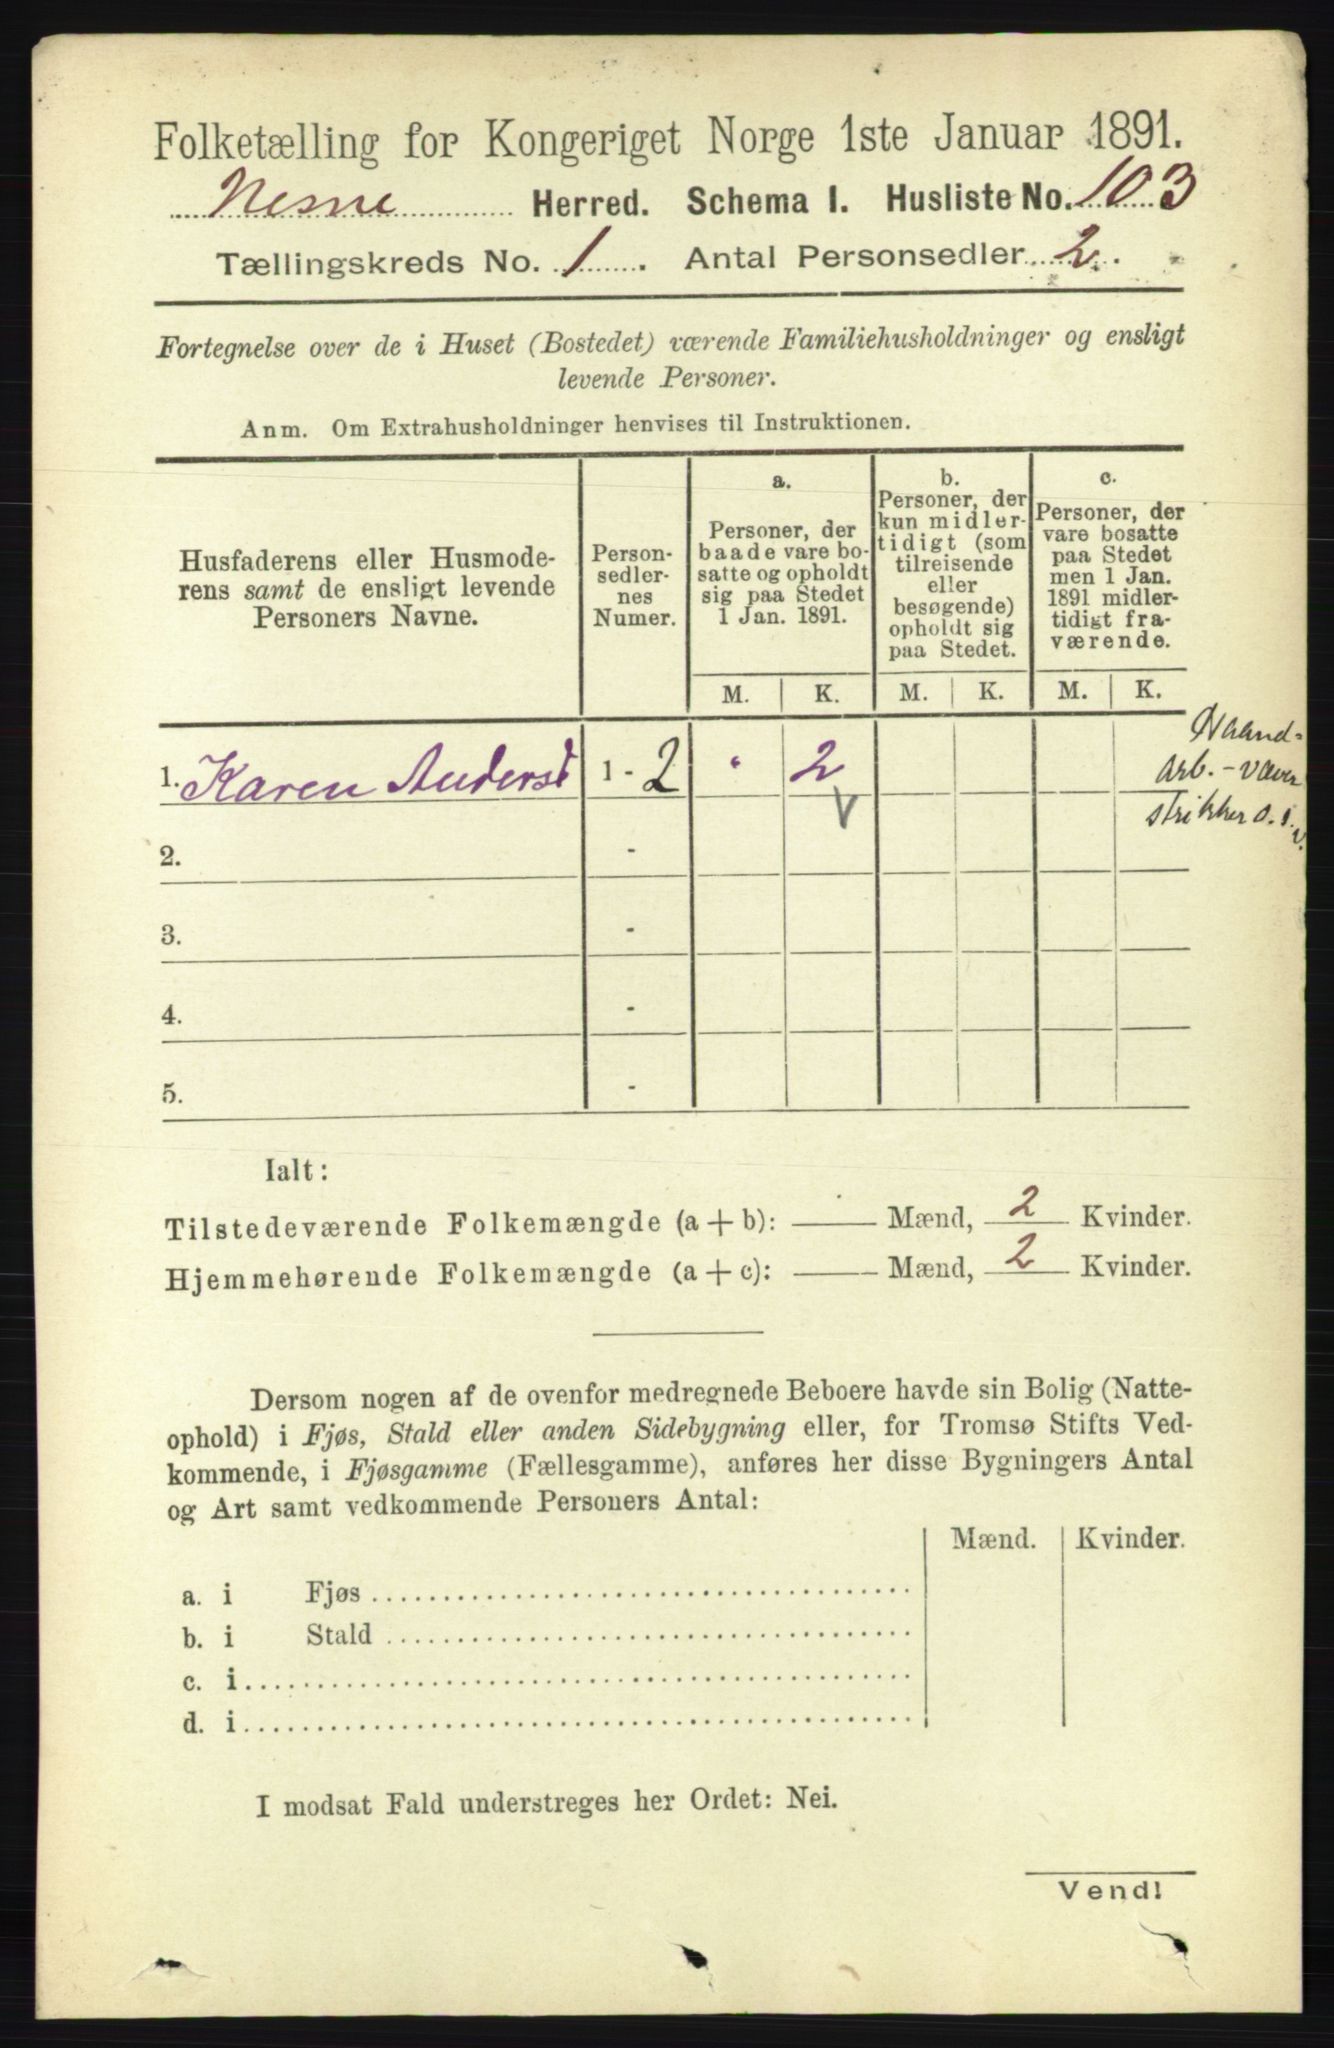 Folketælling for Kongeriget Norge 1ste Januar 1891.
Nesne Herred. Schema I. Husliste No. 103
Tællingskreds No. 1. Antal Personsedler 2.
Fortegnelse over de i Huset (Bostedet) værende Familiehusholdninger og ensligt
levende Personer.
Anm. Om Extrahusholdninger henvises til Instruktionen.
Husfaderens eller Husmode-
rens samt de ensligt levende
Personers Navne.
Person-
sedler-
nes
Numer.
a.
Personer, der
baade vare bo-
satte og opholdt
sig paa Stedet
1 Jan. 1891.
b.
Personer, der
kun midler-
tidigt (som
tilreisende
eller
besøgende)
opholdt sig
paa Stedet.
c.
Personer, der
vare bosatte
paa Stedet
men 1 Jan.
1891 midler-
tidigt fra-
værende.
M. K. M. K. M. K.
1. Karen Andersd 1 - 2 " 2
V
Haand-
arb. - væver
strikker o. s.
v.
2. -
3. -
4. -
5. -
Ialt:
Tilstedeværende Folkemængde (a + b): — Mænd, 2 Kvinder.
Hjemmehørende Folkemængde (a + c): — Mænd, 2 Kvinder.
Dersom nogen af de ovenfor medregnede Beboere havde sin Bolig (Natte-
ophold) i Fjøs, Stald eller anden Sidebygning eller, for Tromsø Stifts Ved-
kommende, i Fjøsgamme (Fællesgamme), anføres her disse Bygningers Antal
og Art samt vedkommende Personers Antal:
Mænd. Kvinder.
a. i Fjøs
b. i Stald
c. i
d. i
I modsat Fald understreges her Ordet: Nei.
Vend!